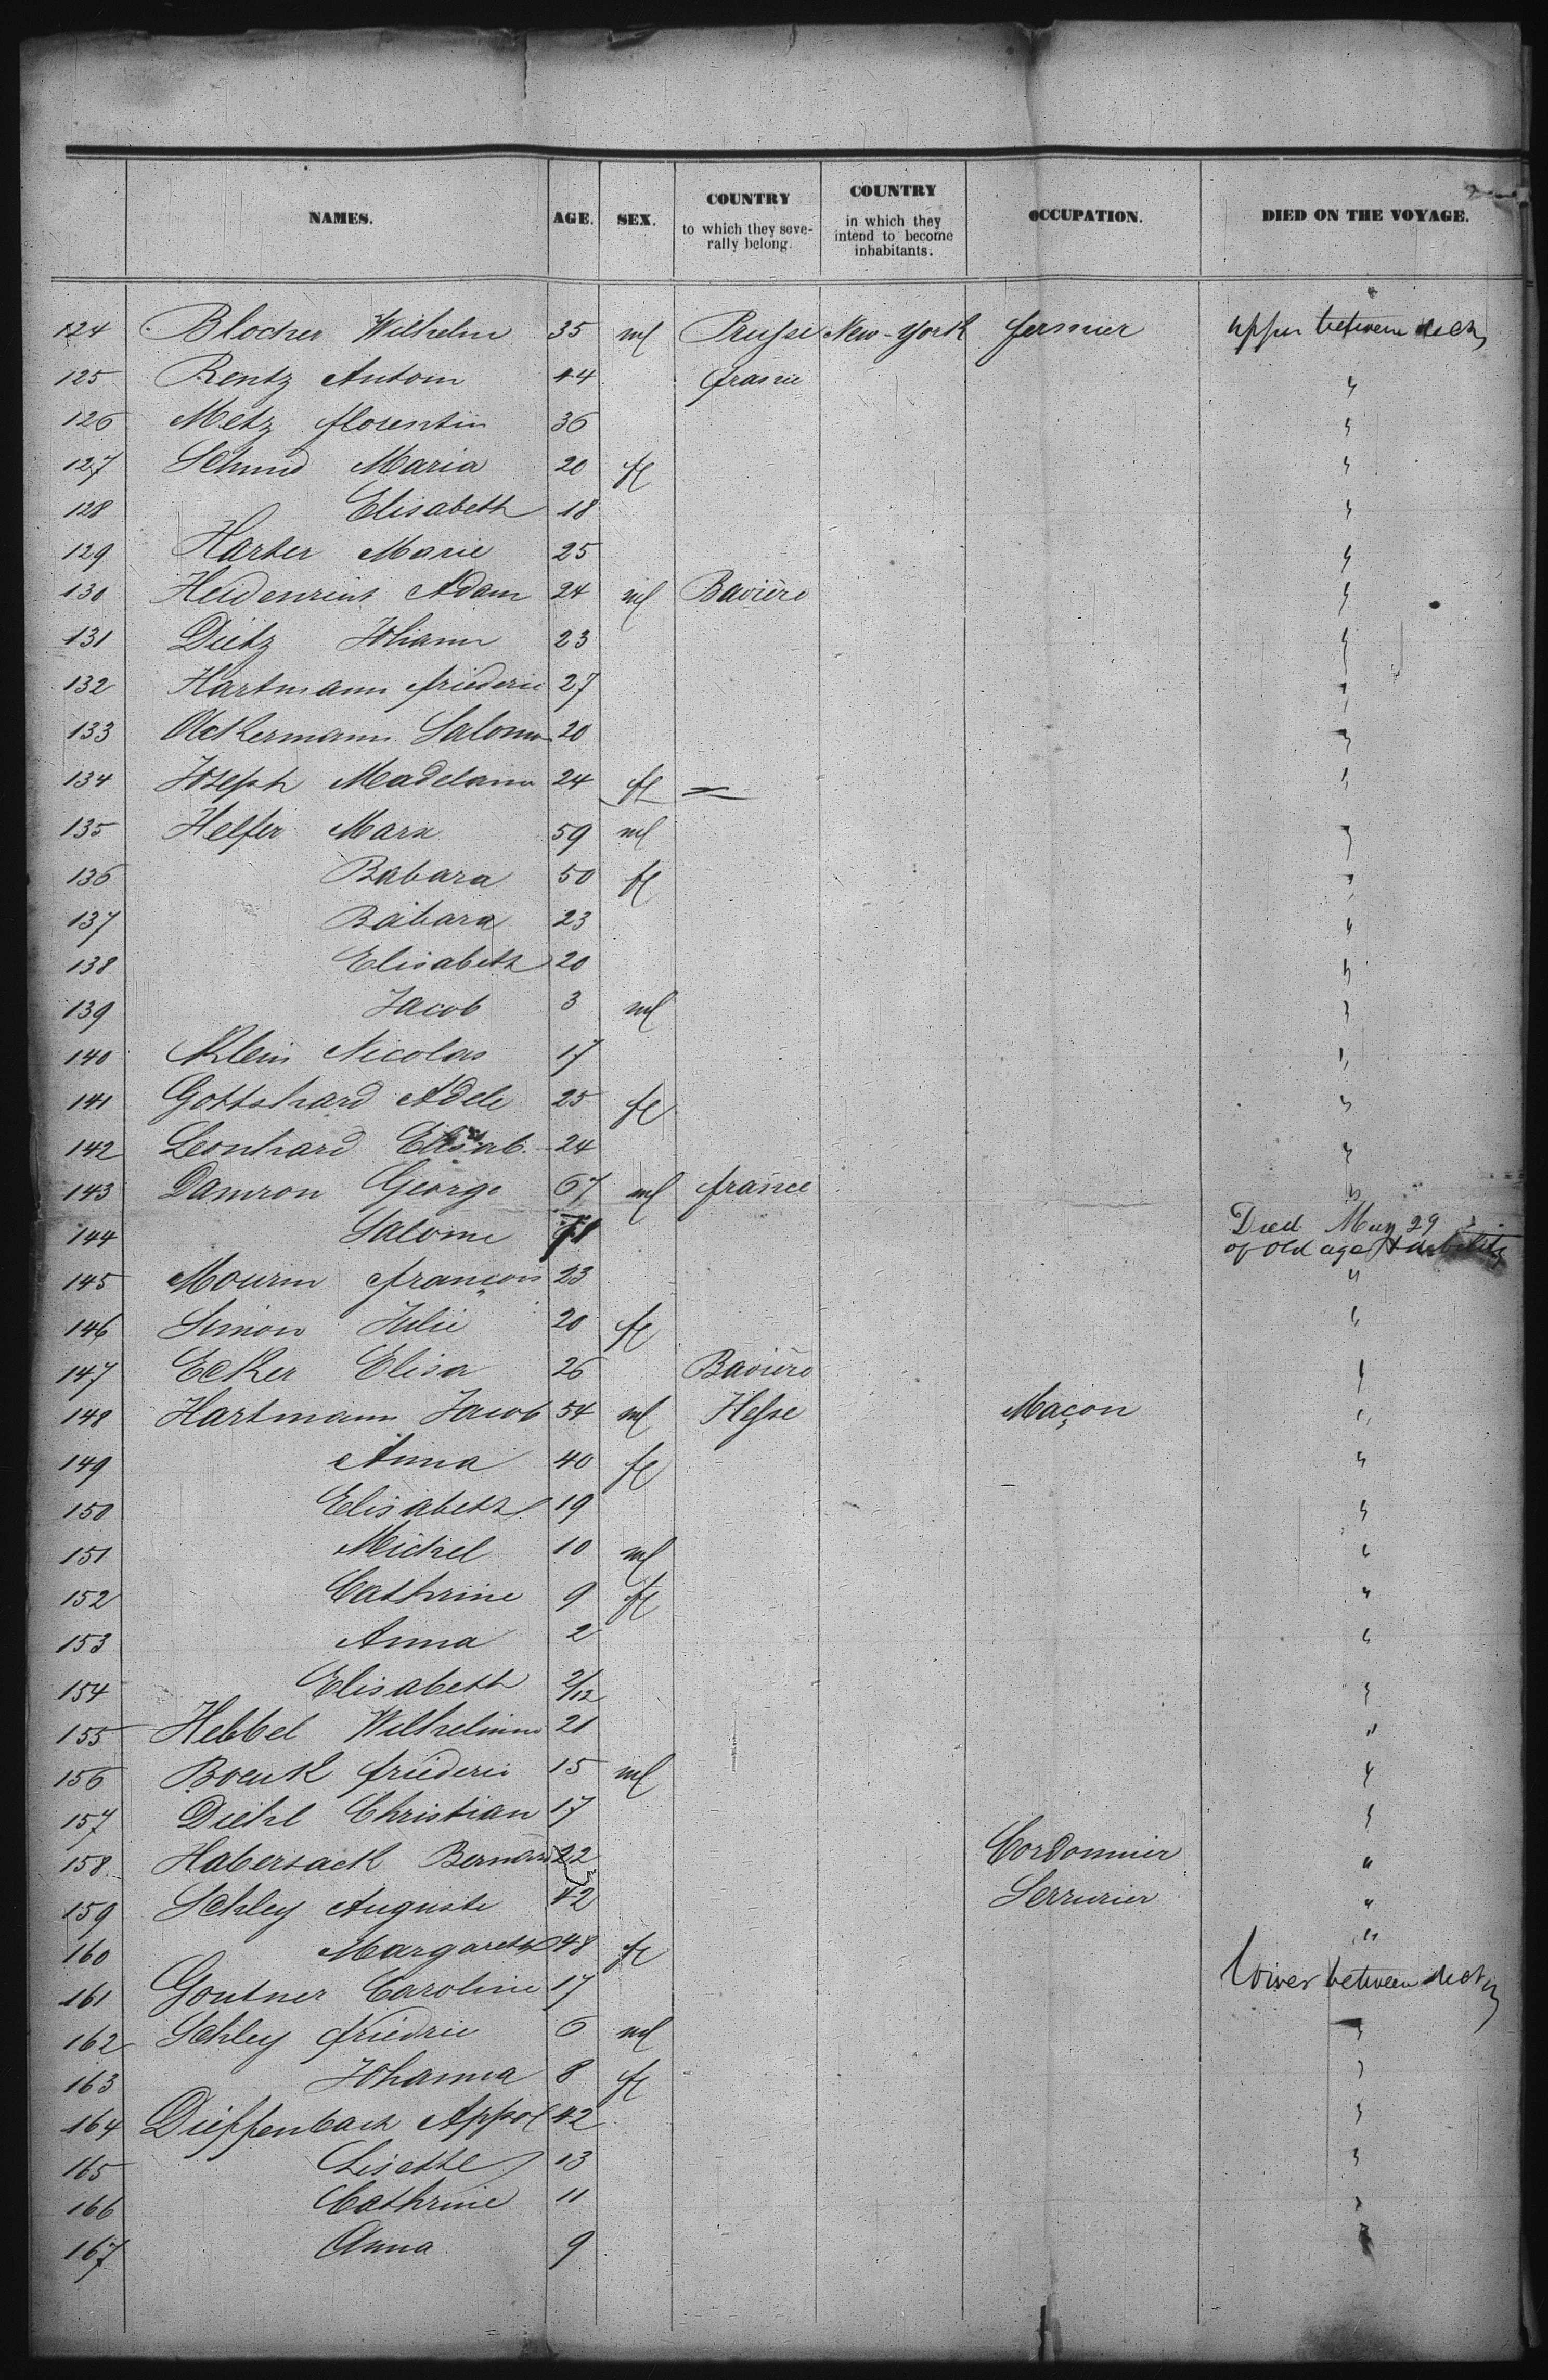 NAMES. AGE. SEX. COUNTRY to which they seve-rally belong. COUNTRY in which they intend to become inhabitants. OCCUPATION. DIED ON THE VOYAGE.
124 Blocher Wilhelm 35 ml Prusse New-York fermier upper between decks
125 Rentz Antom 44 france "
126 Metz florentin 36 "
127 Schmid Maria 20 fl "
128 Elisabeth 18 "
129 Harter Marie 25 "
130 Heidenreich Adam 24 ml Bavière "
131 Dietz Johann 23 "
132 Hartmann friederic 27 "
133 Ackermann Salomon 20 "
134 Joseph Madelaine 24 fl = "
135 Helfer Marx 59 ml "
136 Babara 50 fl "
137 Babara 23 "
138 Elisabeth 20 "
139 Jacob 3 ml "
140 Klein Nicolas 17 "
141 Gottshard Adele 25 fl "
142 Leonhard Elisab. 24 "
143 Damron George 67 ml france "
144 Salome 71 Died May 29
of old age & debility
145 Mourin françois 23 "
146 Simon Julie 20 fl "
147 Ecker Elisa 26 Bavière "
148 Hartmann Jacob 54 ml Hesse Maçon "
149 Anna 40 fl "
150 Elisabeth 19 "
151 Michel 10 ml "
152 Cathrine 9 fl "
153 Anna 2 "
154 Elisabeth 2/12 "
155 Hebbel Wilhelmine 21 "
156 Boeuk friederic 15 ml "
157 Diehl Christian 17 "
158 Habersack Bernard 22 Cordonnier "
159 Schley Auguste 42 Serrurier "
160 Margareth 48 fl "
161 Goutner Caroline 17 lower between decks
162 Schley friedric 6 ml "
163 Johanna 8 fl "
164 Dieffenbach Appol 42 "
165 Lisette 13 "
166 Cathrine 11 "
167 Anna 9 "